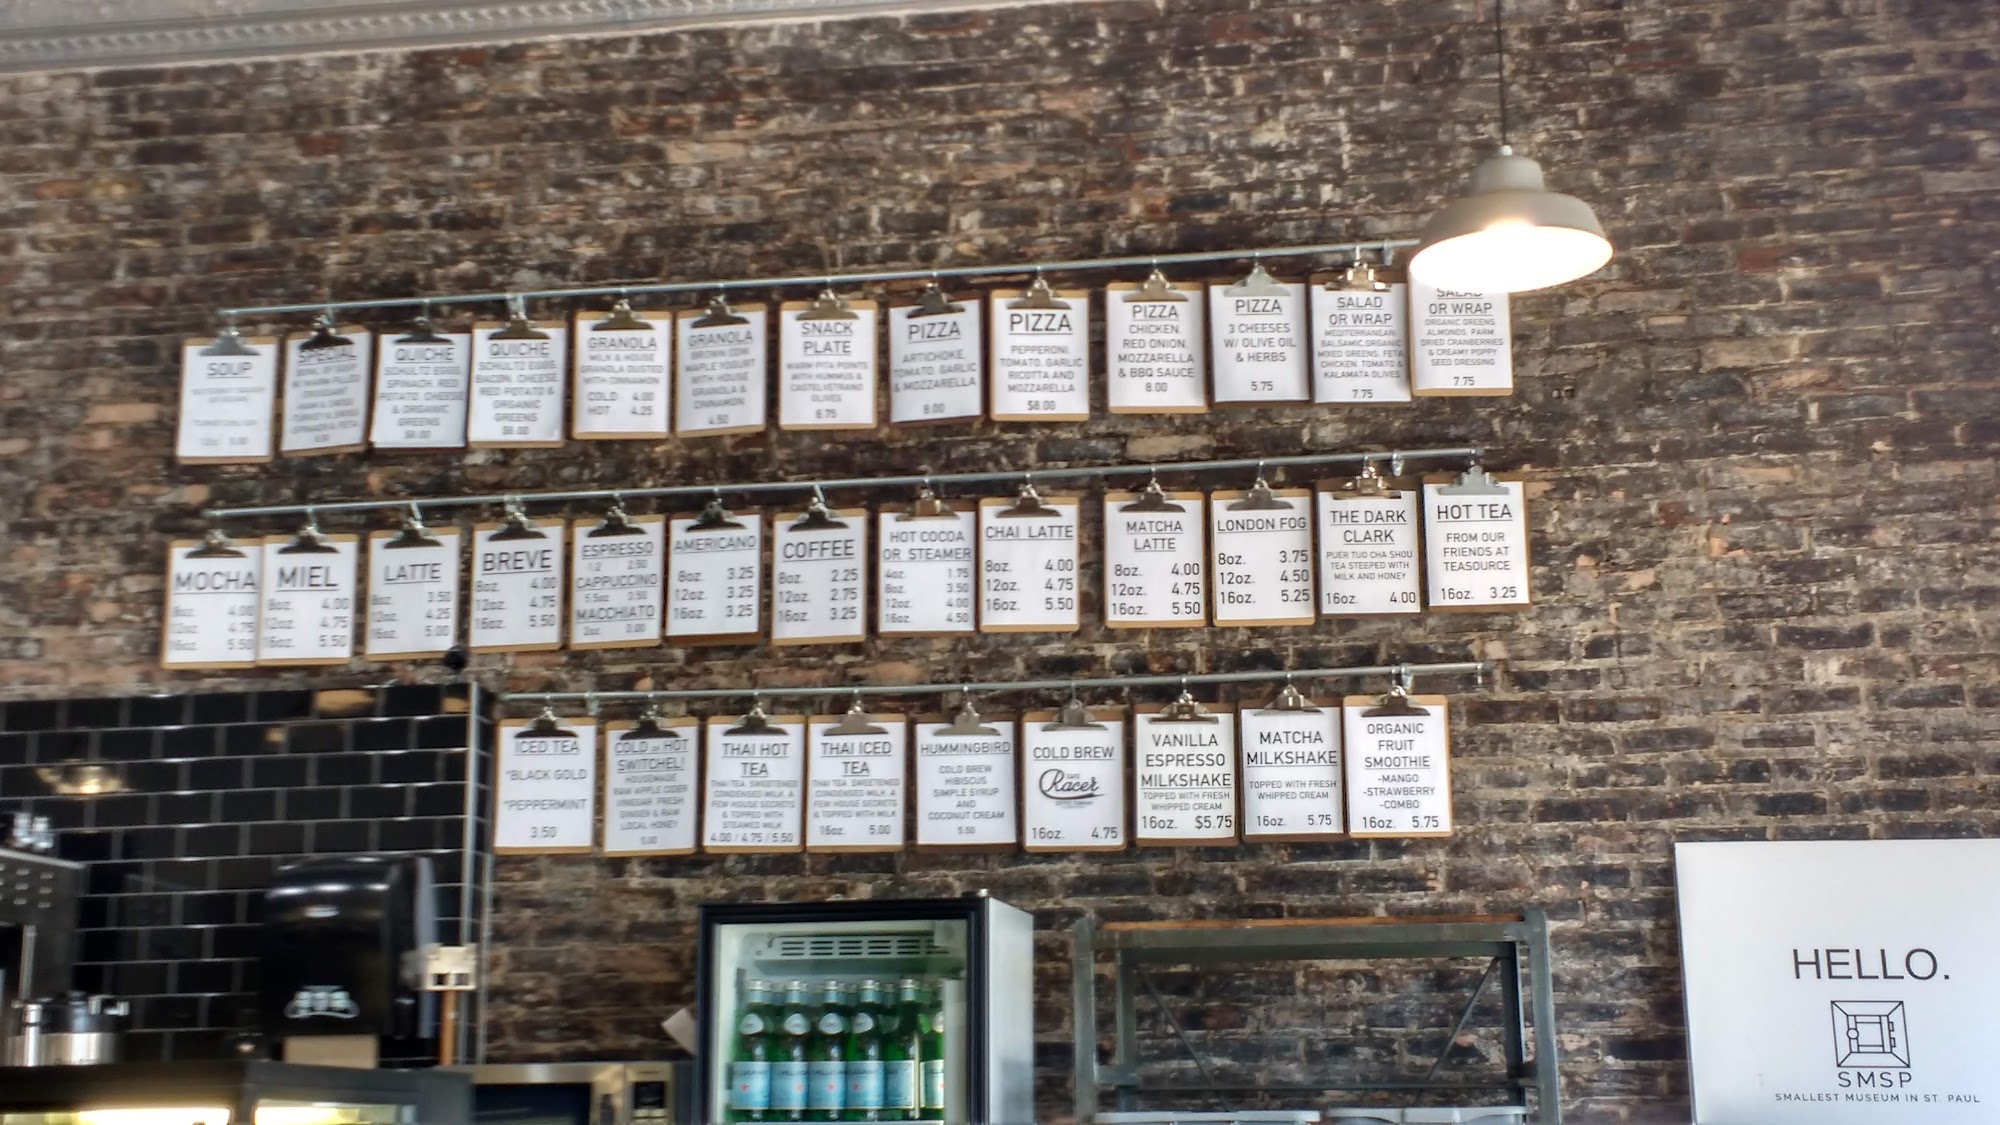 SOUP
SPECIAL
QUICHE
SCHULTZ EGGS,
SPINACH, RED
POTATO, CHEESE
& ORGANIC
GREENS
$6.00
QUICHE
SCHULTZ EGGS,
BACON, CHEESE
RED POTATO &
ORGANIC
GREENS
$6.00
GRANOLA
MILK & HOUSE
GRANOLA DUSTED
WITH CINNAMON
COLD 4.00
HOT 4.25
GRANOLA
BROWN COW
MAPLE YOGURT
WITH HOUSE
GRANOLA &
CINNAMON
4.50
SNACK
PLATE
WARM PITA POINTS
WITH HUMMUS &
CASTELVETRANO
OLIVES
6.75
PIZZA
ARTICHOKE,
TOMATO, GARLIC
& MOZZARELLA
8.00
PIZZA
PEPPERONI,
TOMATO, GARLIC
RICOTTA AND
MOZZARELLA
$8.00
PIZZA
CHICKEN,
RED ONION,
MOZZARELLA
& BBQ SAUCE
8.00
PIZZA
3 CHEESES
W/ OLIVE OIL
& HERBS
5.75
SALAD
OR WRAP
MEDITERRANEAN:
BALSAMIC, ORGANIC
MIXED GREENS, FETA
CHICKEN, TOMATO &
KALAMATA OLIVES
7.75
SALAD
OR WRAP
ORGANIC GREENS
ALMONDS, PARM,
DRIED CRANBERRIES
& CREAMY POPPY
SEED DRESSING
7.75
MOCHA
8oz. 4.00
12oz. 4.75
16oz. 5.50
MIEL
8oz. 4.00
12oz. 4.75
16oz. 5.50
LATTE
8oz. 3.50
12oz. 4.25
16oz. 5.00
BREVE
8oz. 4.00
12oz. 4.75
16oz. 5.50
ESPRESSO
2.50
CAPPUCCINO
3.50
MACCHIATO
2oz 3.00
AMERICANO
8oz. 3.25
12oz. 3.25
16oz. 3.25
COFFEE
8oz. 2.25
12oz. 2.75
16oz. 3.25
HOT COCOA
OR STEAMER
4oz. 1.75
8oz. 3.50
12oz. 4.00
16oz. 4.50
CHAI LATTE
8oz. 4.00
12oz. 4.75
16oz. 5.50
MATCHA
LATTE
8oz. 4.00
12oz. 4.75
16oz. 5.50
LONDON FOG
8oz. 3.75
12oz. 4.50
16oz. 5.25
THE DARK
CLARK
PUER TUO CHA SHOU
TEA STEEPED WITH
MILK AND HONEY
16oz. 4.00
HOT TEA
FROM OUR
FRIENDS AT
TEASOURCE
16oz. 3.25
ICED TEA
*BLACK GOLD
*PEPPERMINT
3.50
COLD or HOT
SWITCHEL!
HOUSEMADE
RAW APPLE CIDER
VINEGAR, FRESH
GINGER & RAW
LOCAL HONEY
THAI HOT
TEA
THAI TEA, SWEETENED
CONDENSED MILK, A
FEW HOUSE SECRETS
& TOPPED WITH
STEAMED MILK
4.00 / 4.75 / 5.50
THAI ICED
TEA
THAI TEA, SWEETENED
CONDENSED MILK, A
FEW HOUSE SECRETS
& TOPPED WITH MILK
16oz. 5.00
HUMMINGBIRD
COLD BREW
HIBISCUS
SIMPLE SYRUP
AND
COCONUT CREAM
5.50
COLD BREW
CAFE
Racer
16oz. 4.75
VANILLA
ESPRESSO
MILKSHAKE
TOPPED WITH FRESH
WHIPPED CREAM
16oz. $5.75
MATCHA
MILKSHAKE
TOPPED WITH FRESH
WHIPPED CREAM
16oz. 5.75
ORGANIC
FRUIT
SMOOTHIE
-MANGO
-STRAWBERRY
-COMBO
16oz. 5.75
HELLO.
SMSP
SMALLEST MUSEUM IN ST. PAUL